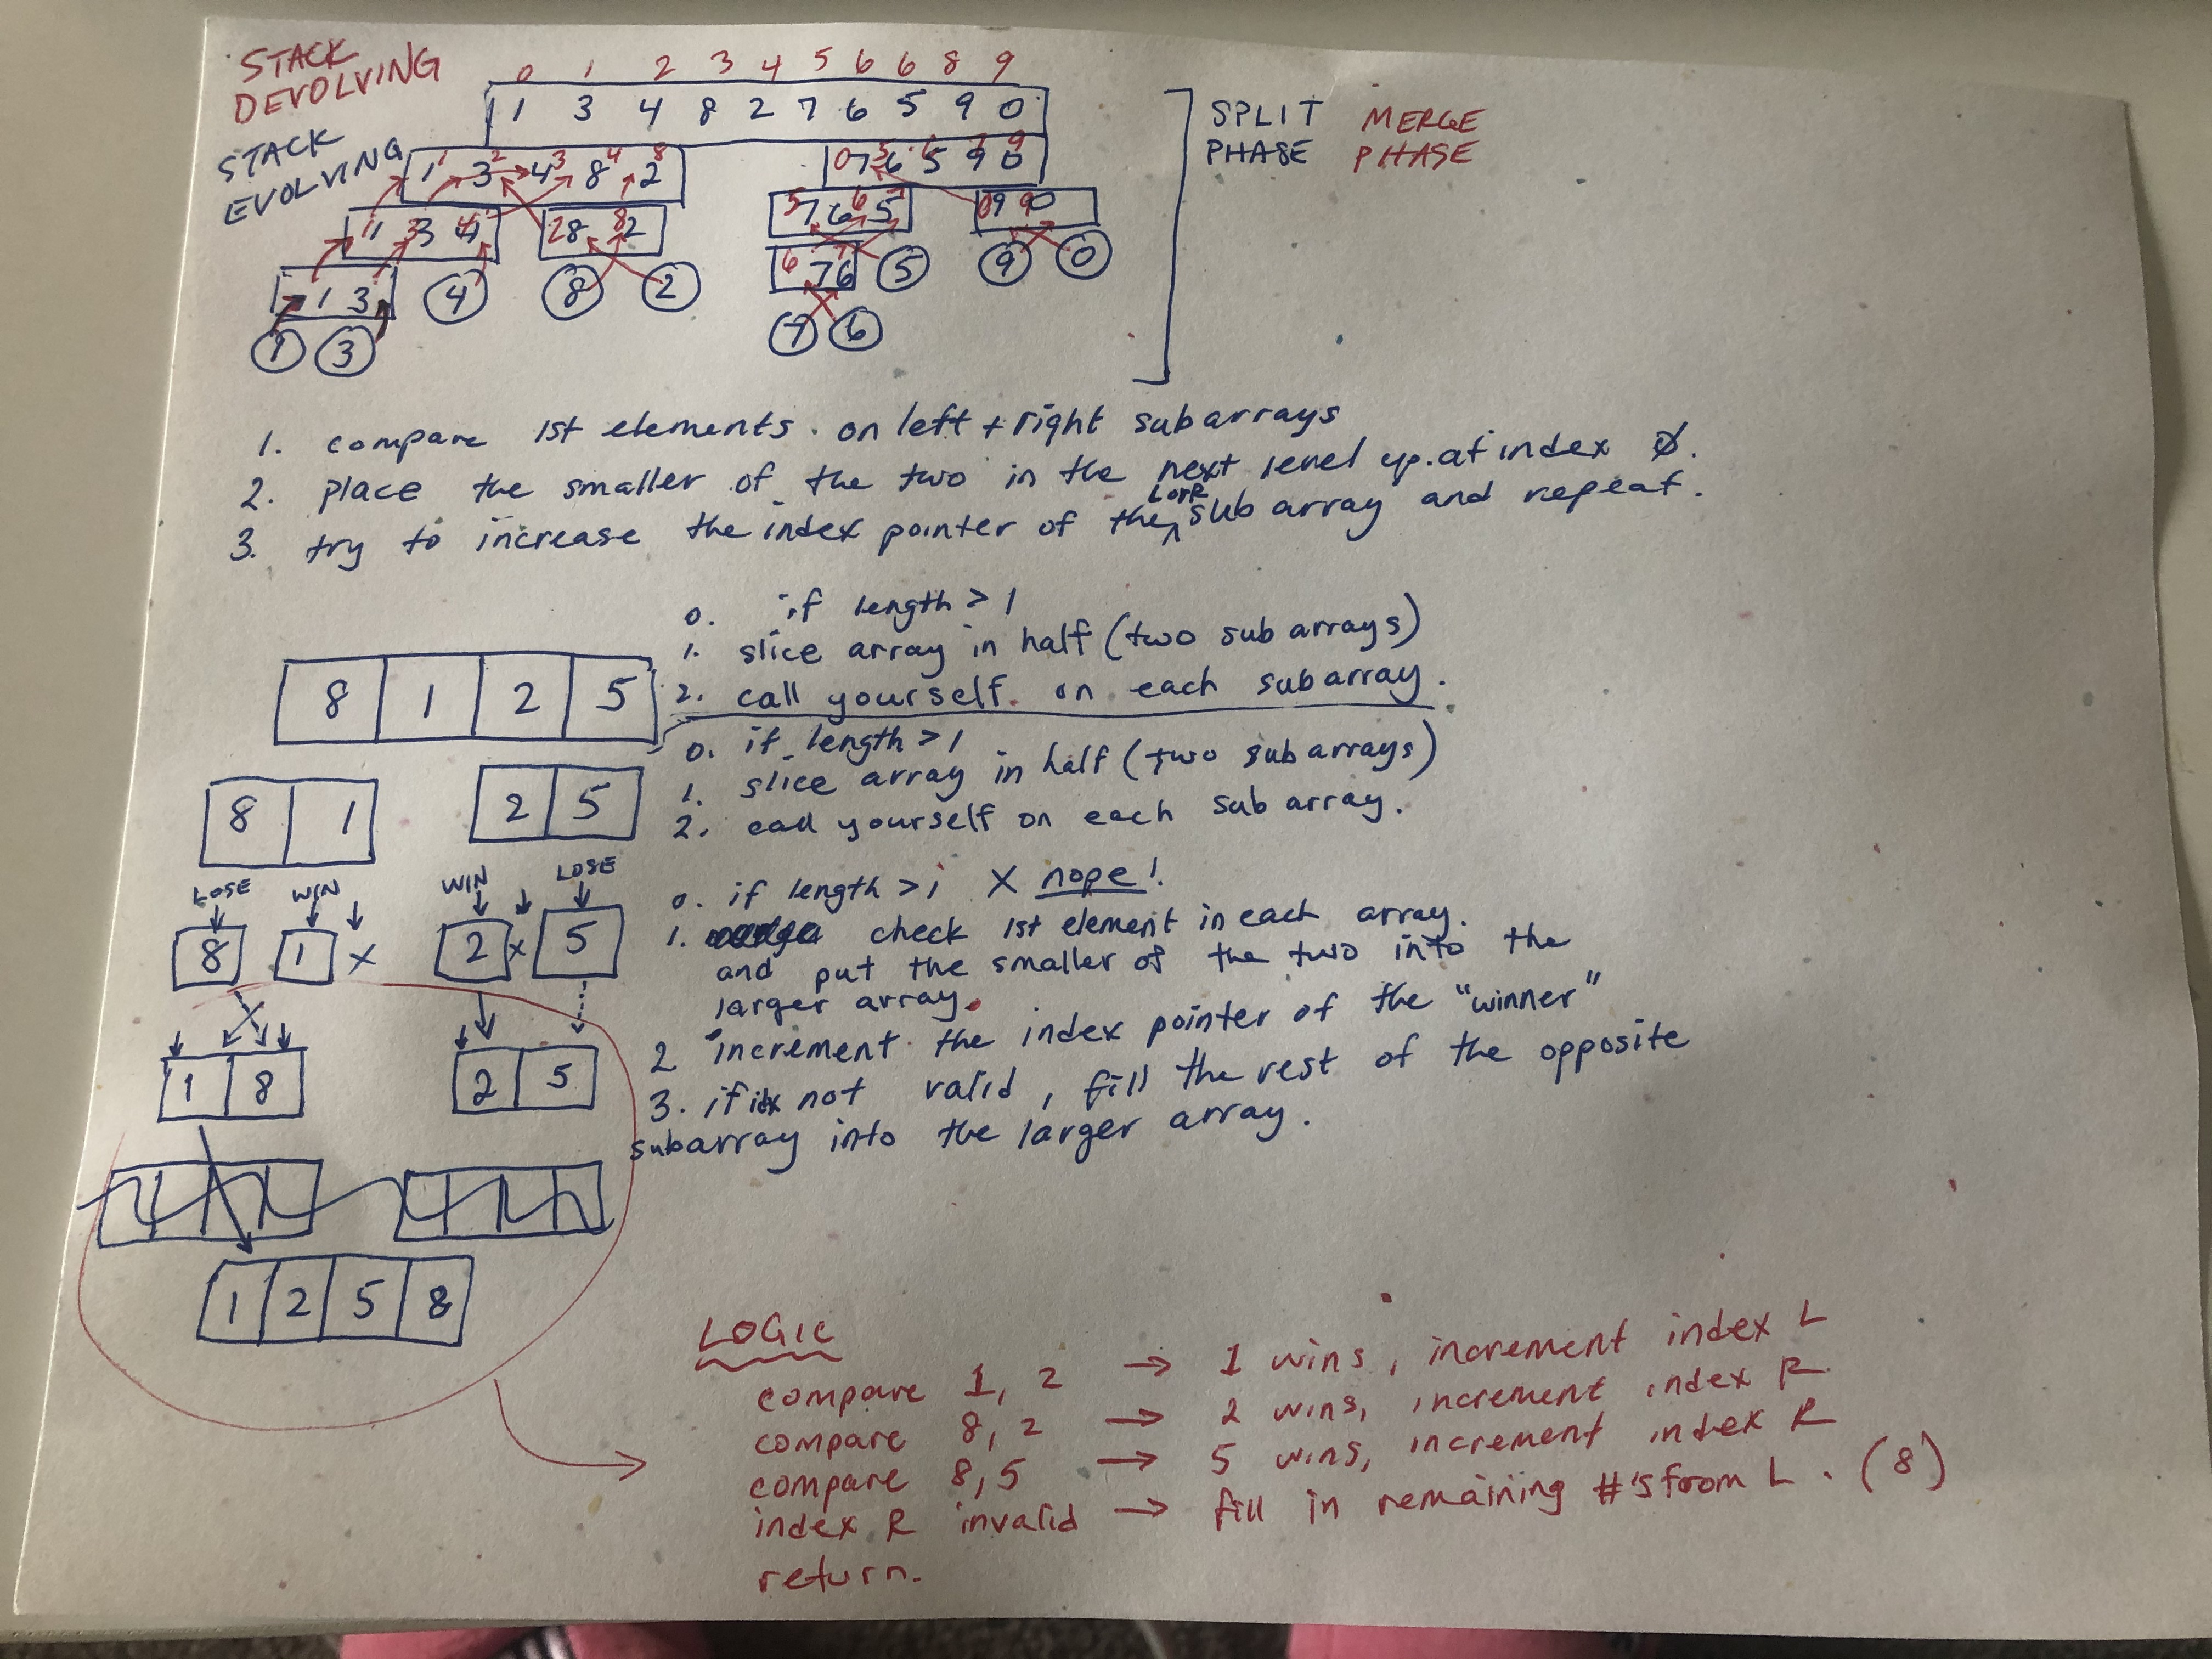 STACK
DEVOLVING
0 1 2 3 4 5 6 6 8 9
1 3 4 8 2 7 6 5 9 0
SPLIT MERGE
PHASE PHASE
STACK
EVOLVING
1 2 3 4 8
1 3 4 8 2
0 5 6 7 9
7 6 5 9 0
1 3 4
1 3 4
2 8
8 2
5 6 7
7 6 5
0 9
9 0
1 3
4
8
2
6 7
7 6
5
9
0
1
3
7
6
1. compare 1st elements on left + right subarrays
2. place the smaller of the two in the next level up at index 0.
L or R
3. try to increase the index pointer of the sub array and repeat.
0. if length > 1
1. slice array in half (two sub arrays)
2. call yourself on each subarray.
8 1 2 5
0. if length > 1
1. slice array in half (two sub arrays)
2. call yourself on each sub array.
8 1
2 5
LOSE WIN WIN LOSE
8 1 x 2 x 5
0. if length > 1 X nope!
1. check 1st element in each array.
and put the smaller of the two into the
larger array.
2 increment the index pointer of the "winner"
3. if idx not valid, fill the rest of the opposite
subarray into the larger array.
1 8
2 5
1 2 5 8
LOGIC
compare 1, 2 → 1 wins, increment index L
compare 8, 2 → 2 wins, increment index R.
compare 8, 5 → 5 wins, increment index R
index R invalid → fill in remaining #'s from L. (8)
return.